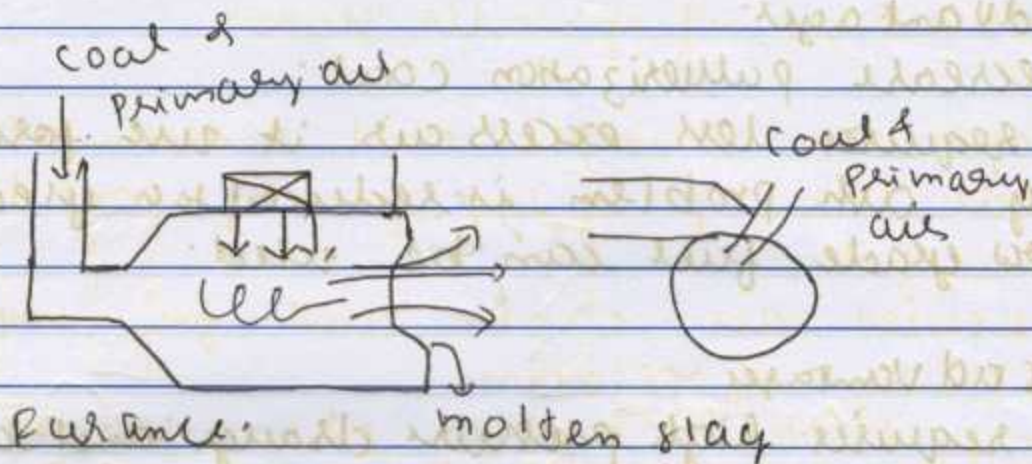 coal &
primary air
coal &
primary
air
Furance.
molten slag